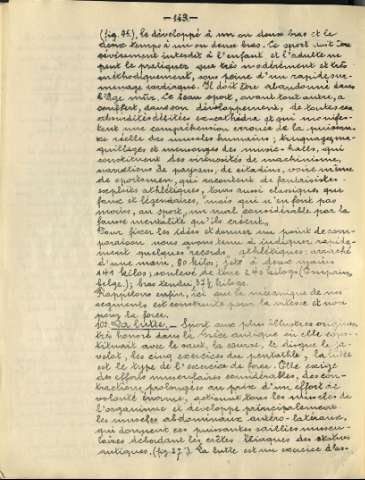 -149-
(fig. 26), le développé à un ou deux bras et le
deux temps à un ou deux bras. Ce sport doit être
sévèrement interdit à l'enfant et l'adulte ne
peut le pratiquer que très modérément et très
méthodiquement, sous peine d'un rapide sur-
menage cardiaque. Il doit être abandonné dans
l'âge mûr. Ce beau sport, avant tout autre, a
souffert, dans son développement, de toutes ces
absurdités débitées ex-cathedra et qui manifes-
tent une compréhension erronée de la puissan-
ce réelle des muscles humains; truquages, ma-
quillages et mensonges des music-halls, qui
constituent des virtuosités de machinisme,
narrations de paysans, de citadins, voire même
de sportsmen, qui racontent de fantaisistes
exploits athlétiques, tous aussi classiques que
faux et légendaires, mais qui n'en font pas
moins, au sport, un mal considérable par la
fausse mentalité qu'ils créent.
Pour fixer les idées et donner un point de com-
paraison nous avons tenu à indiquer rapide-
ment quelques records athlétiques: arraché
d'une main, 80 kilos; jeté à deux mains
141 kilos; soulevé de terre 240 kilogs (
belge); bras tendu, 37½ kilogs.
Rappelons enfin, ici que la mécanique de nos
segments est construite pour la vitesse et non
pour la force.
10: La lutte. - Sport aux plus illustres origines,
très honoré dans la Grèce antique où elle cons-
tituait avec le saut, la course, le disque le ja-
velot, les cinq exercices du pentathle, la lutte
est le type de l'exercice de force. Elle exige
des efforts musculaires considérables, des con-
tractions prolongées au prix d'un effort de
volonté énorme, actionnt tous les muscles de
l'organisme et développe principalement
les muscles abdominaux antéro-latéraux,
qui donnent ces puissantes saillies muscu-
laires débordant les crêtes iliaques des statues
antiques. (fig. 27). La lutte est un exercice d'as-